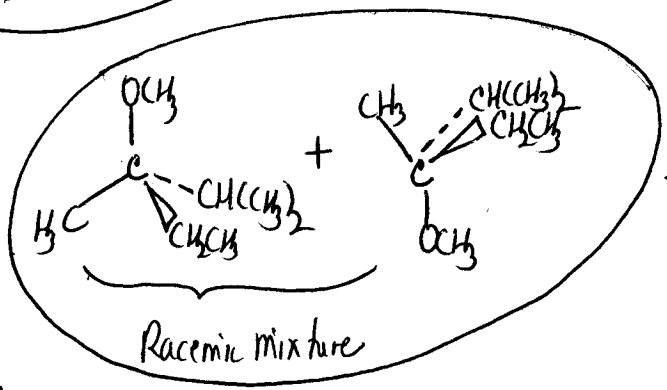 OCH3 CH3 CH(CH3)2
C + CH2CH3
CH(CH3)2 C
H3C CH2CH3 OCH3
Racemic mixture